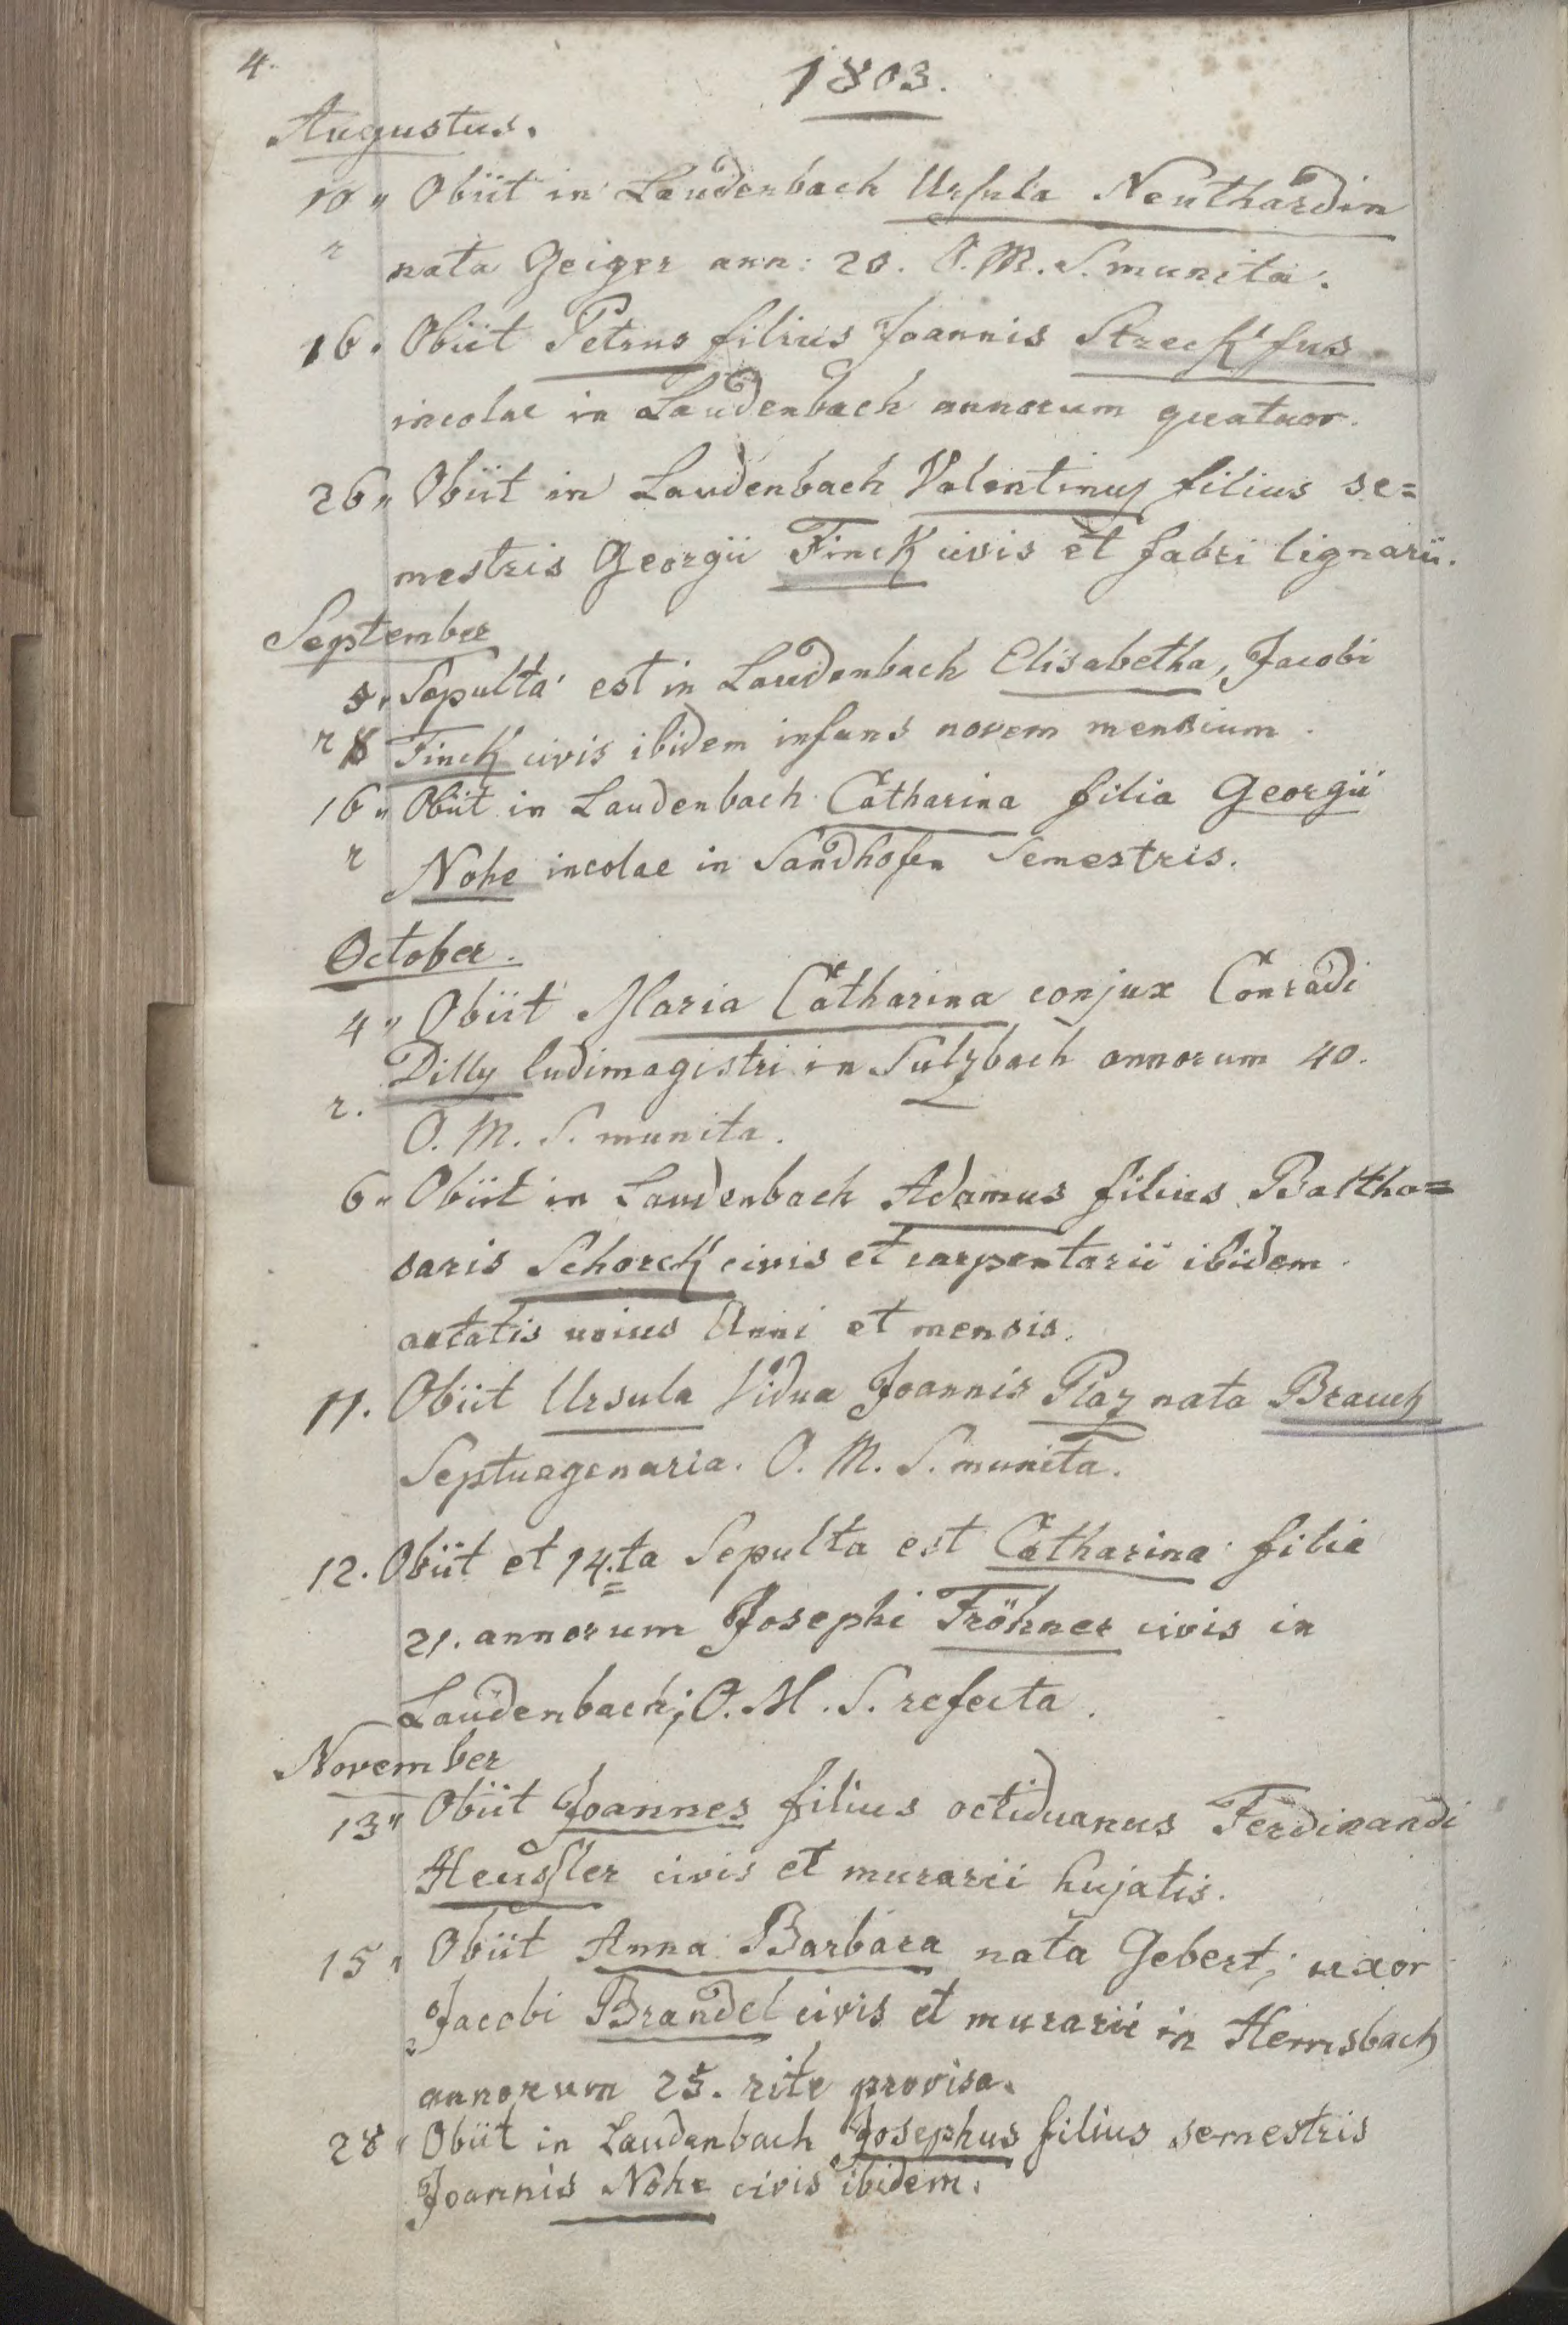 4.
1803.
Augustus.
10 " Obiit in Laudenbach Ursula Neuthardin
r nata Geiger ann: 20. O. M. S. munita.
16. Obiit Petrus filius Joannis Streckfus
incolae in Laudenbach annorum quatuor.
26 " Obiit in Laudenbach Valentinus filius se=
mestris Georgii Finck civis et fabri lignarii.
September
5. Sepulta est in Laudenbach Elisabetha, Jacobi
r Finck civis ibidem infans novem mensium.
16 " Obiit in Laudenbach Catharina filia Georgii
r Nohe incolae in Sandhofen Semestris.
October.
4 " Obiit Maria Catharina conjux Conradi
Dilly ludimagistri in Sulzbach annorum 40.
r. O. M. S. munita.
6 " Obiit in Laudenbach Adamus filius Baltha=
saris Schorck civis et carpentarii ibidem.
aetatis unius Anni et mensis.
11. Obiit Ursula Vidua Joannis Plaz nata Brauch
Septuagenaria. O. M. S. munita.
12. Obiit et 14.ta Sepulta est Catharina filia
21. annorum Josephi Fröhner civis in
Laudenbach; O. M. S. refecta.
November
13 " Obiit Joannes filius octiduanus Ferdinandi
Heussler civis et murarii hujatis.
15 " Obiit Anna Barbara nata Gebert; uxor
Jacobi Brandel civis et murarii in Hemsbach
annorum 25. rite provisa.
28 " Obiit in Laudenbach Josephus filius semestris
Joannis Nohe civis ibidem.